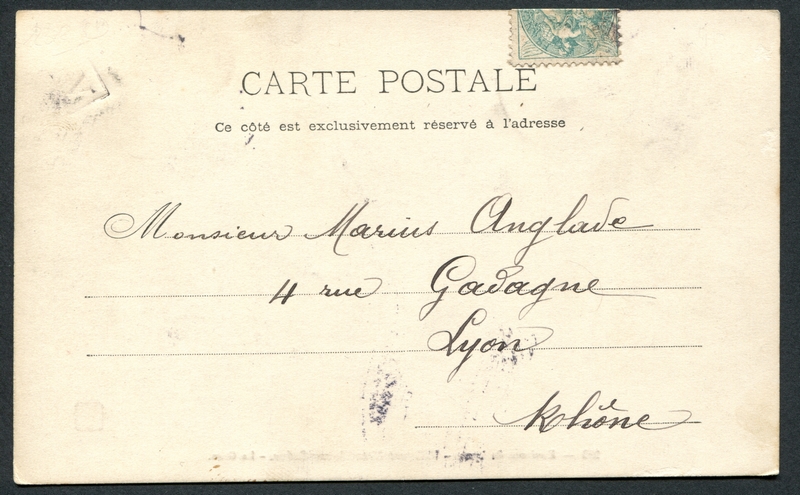 CARTE POSTALE
Ce côté est exclusivement réservé à l'adresse
Monsieur Marius Anglade
4 rue Gadagne
Lyon
Rhône